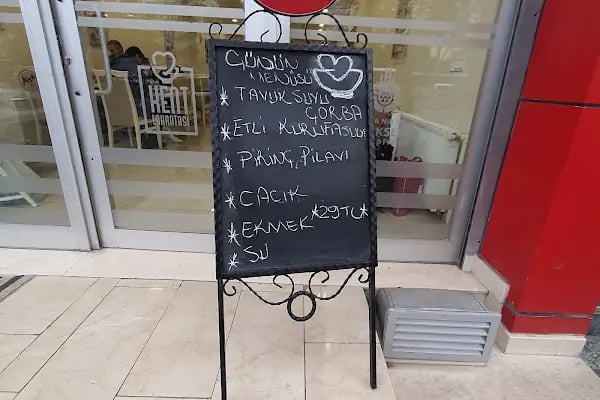 GÜNÜN
MENÜSÜ
* TAVUKSUYU
ÇORBA
* ETLİ KURUFASULYE
* PİRİNÇ PİLAVI
* CACIK
* EKMEK *29TL*
* SU
KENT